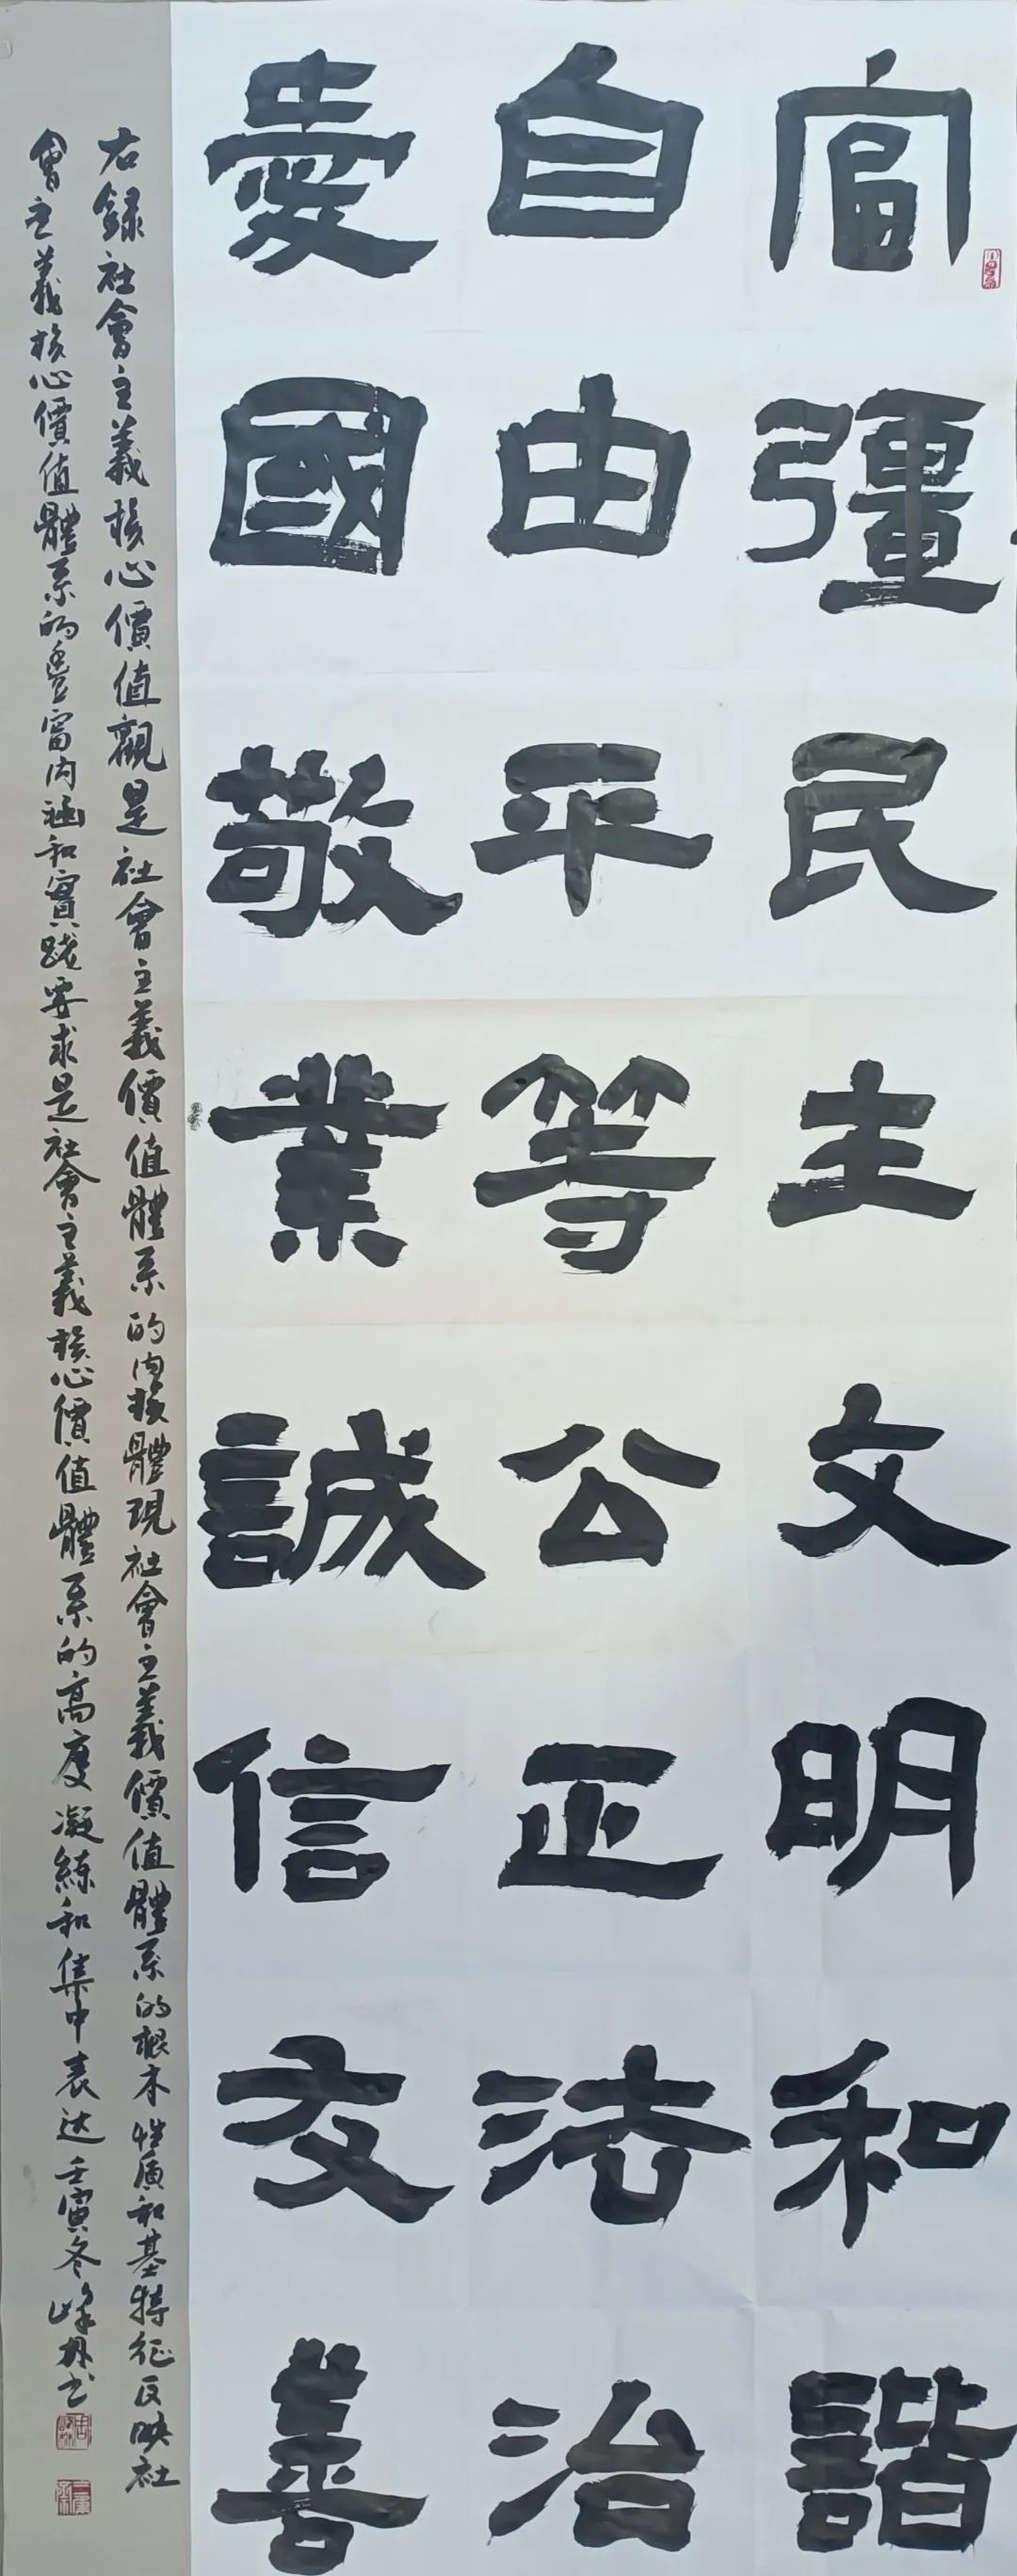 富彊民主文明和諧
自由平等公正法治
愛國敬業誠信友善
右録社會主義核心價值觀是社會主義價值體系的内核體現社會主義價值體系的根本性质和基特征反映社
會主義核心價值體系的豊富内涵和實踐要求是社會主義核心價值體系的高度凝練和集中表达壬寅冬峰丹书